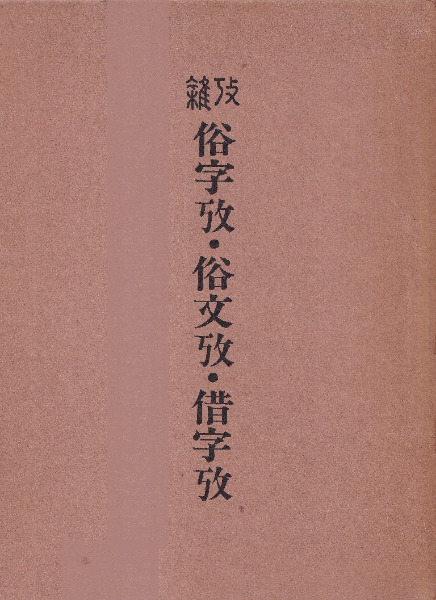 攷雜
俗字攷・俗文攷・借字攷